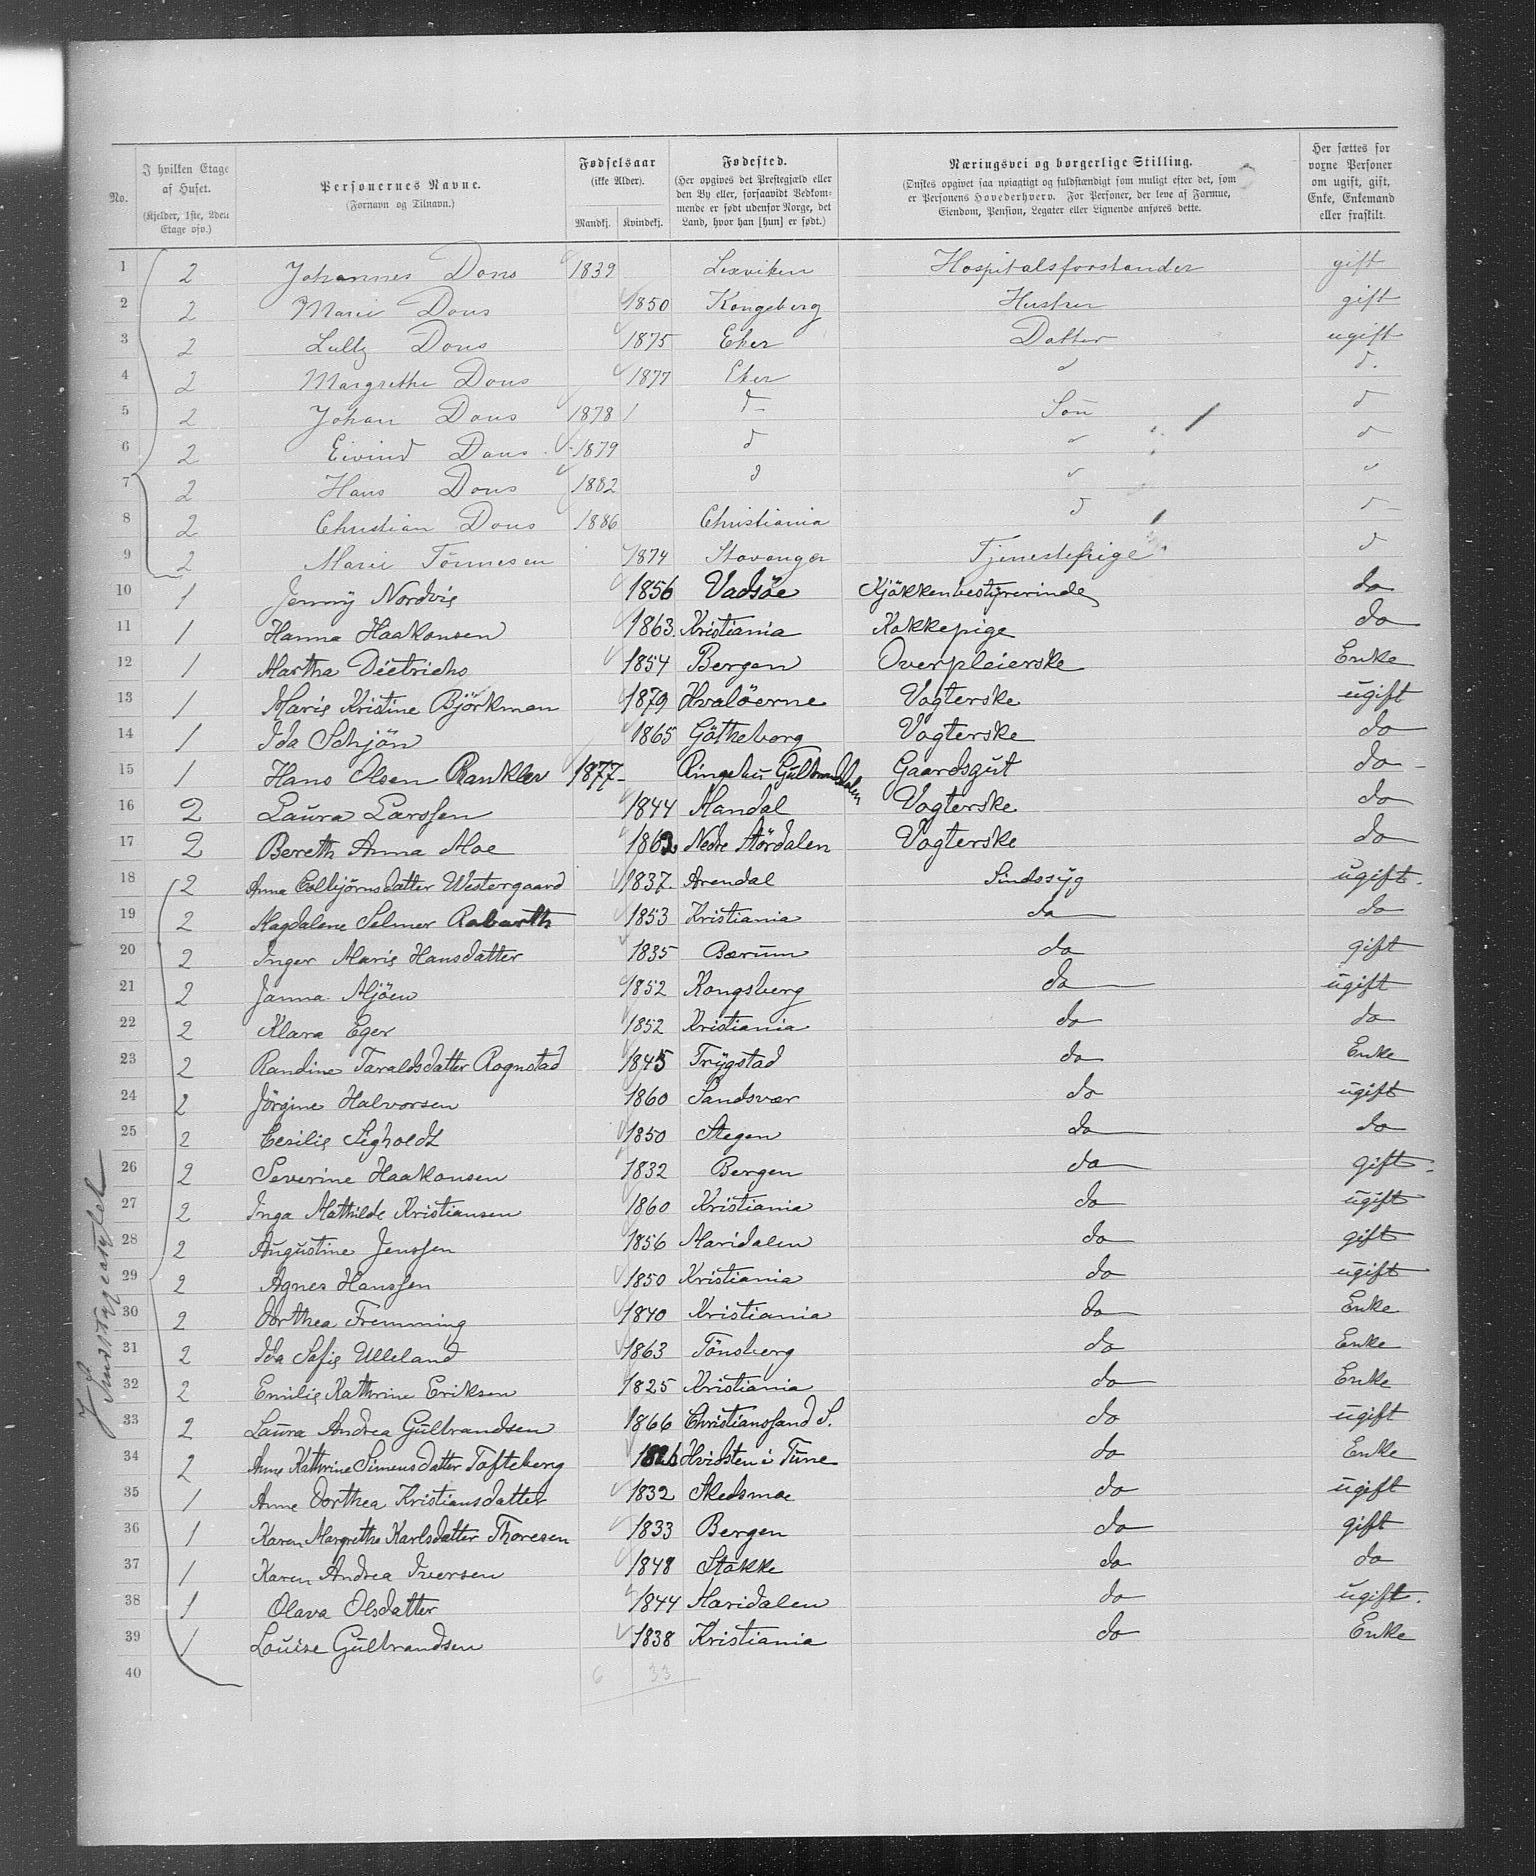 No.
I hvilken Etage af Huset.
(Kjelder, 1ste, 2den Etage osv.)
Personernes Navne.
(Fornavn og Tilnavn.)
Fødselsaar
(ikke Alder).
Mandkj. Kvindekj.
Fødested.
(Her opgives det Prestegjæld eller den By eller, forsaavidt Vedkommende er født udenfor Norge, det Land, hvor han [hun] er født.)
Næringsvei og borgerlige Stilling.
(Ønskes opgivet saa nøiagtigt og fuldstændigt som muligt efter det, som er Personens Hovederhverv. For Personer, der leve af Formue, Eiendom, Pension, Legater eller Lignende anføres dette.
Her sættes for voxne Personer om ugift, gift, Enke, Enkemand eller fraskilt.
1 2 Johannes Dons 1839 Lexviken Hospitalsforstander gift
2 2 Marie Dons 1850 Kongsberg Hustru gift
3 2 Lully Dons 1875 Eker Datter ugift
4 2 Margrethe Dons 1877 Eker d d.
5 2 Johan Dons 1878 d Søn d
6 2 Eivind Dons 1879 d d d
7 2 Hans Dons 1882 d d d
8 2 Christian Dons 1886 Christiania d d
9 2 Marie Tönnesen 1874 Stavanger Tjenestepige d
10 1 Jenny Nordvig 1856 Vadsöe Kjökkenbestyrerinde do
11 1 Hanna Haakonsen 1863 Kristiania Kokkepige do
12 1 Martha Dietrichs 1854 Bergen Overpleierske Enke
13 1 Marie Kristine Björkman 1879 Hvalöerne Vogterske ugift
14 1 Ida Schjön 1865 Götheborg Vogterske do
15 1 Hans Olsen Rankler 1877 Ringebu Gulbrandsdalen Gaardsgut do
16 2 Laura Larssen 1844 Mandal Vogterske do
17 2 Bereth Anna Moe 1862 Nedre Stördalen Vogterske do
18 2 Anne Esbjörnsdatter Westergaard 1837 Arendal Sindssyg ugift.
19 2 Magdalene Selmer Rabarth 1853 Kristiania do do
20 2 Inger Marie Hansdatter 1835 Bærum do gift
21 2 Janna Mjöen 1852 Kongsberg do ugift
22 2 Klara Eger 1852 Kristiania do do
23 2 Randine Taraldsdatter Rognstad 1845 Trygstad do Enke
24 2 Jörgine Halvorsen 1860 Sandsvær do ugift
25 2 Cesilie Sigholdt 1850 Stegen do do
26 2 Severine Haakonsen 1832 Bergen do gift
27 2 Inga Mathilde Kristiansen 1860 Kristiania do ugift
28 2 Augustine Jenssen 1856 Maridalen do gift
29 2 Agnes Hanssen 1850 Kristiania do ugift
30 2 Dorthea Fremming 1840 Kristiania do Enke
31 2 Ida Sofie Ulleland 1863 Tönsberg do Enke
32 2 Emilie Kathrine Eriksen 1825 Kristiania do Enke
33 2 Laura Andrea Gulbrandsen 1866 Christianssand S. do ugift
34 2 Anne Kathrine Simensdatter Tofteberg 1826 Hvidsten i Tune do Enke
35 1 Anne Dorthea Kristiansdatter 1832 Skedsmoe do ugift
36 1 Karen Margrethe Karlsdatter Thoresen 1833 Bergen do gift
37 1 Karen Andrea Iversen 1848 Stokke do do
38 1 Olava Olsdatter 1844 Maridalen do ugift.
39 1 Louise Gulbrandsen 1838 Kristiania do Enke
40 6 33